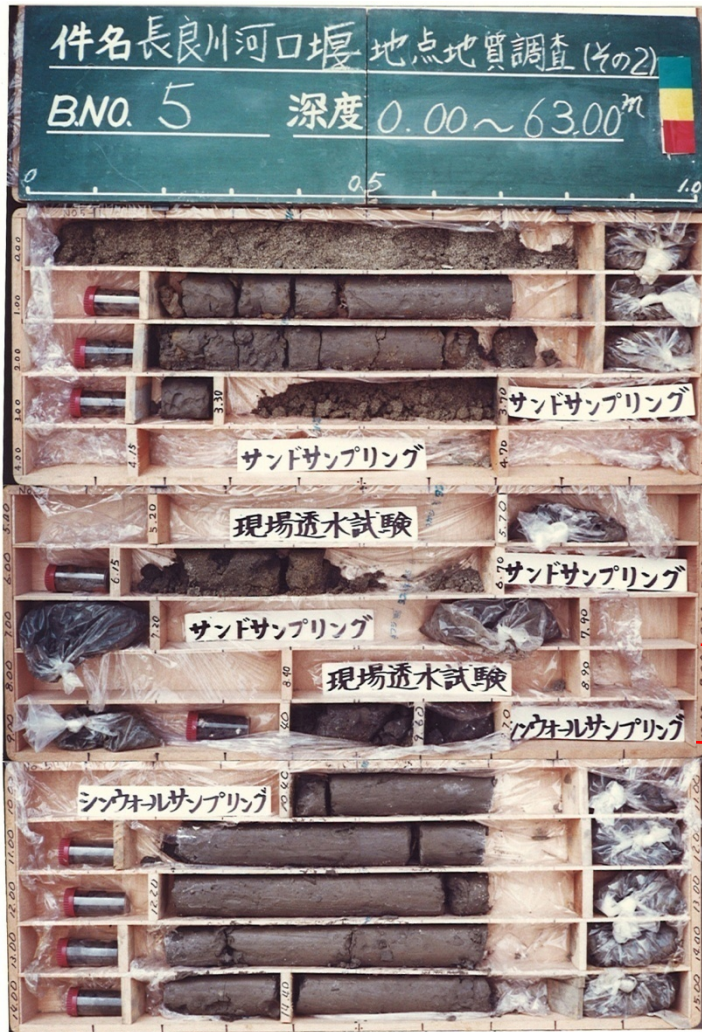 件名 長良川河口堰 地点地質調査(その2)
B.NO. 5 深度 0.00～63.00m
0 0.5 1.0
0.00
1.00
2.00
3.00 3.30 3.70 サンドサンプリング
4.00 4.15 サンドサンプリング 4.70
5.00 5.20 現場透水試験 5.70
6.00 6.15 6.70 サンドサンプリング
7.00 7.20 サンドサンプリング 7.90
8.00 8.40 現場透水試験 8.90
9.00 9.60 シンウォールサンプリング
シンウォールサンプリング 10.40 11.00
11.00
12.00 12.20 13.00
13.00 14.00
14.00 14.40 15.00